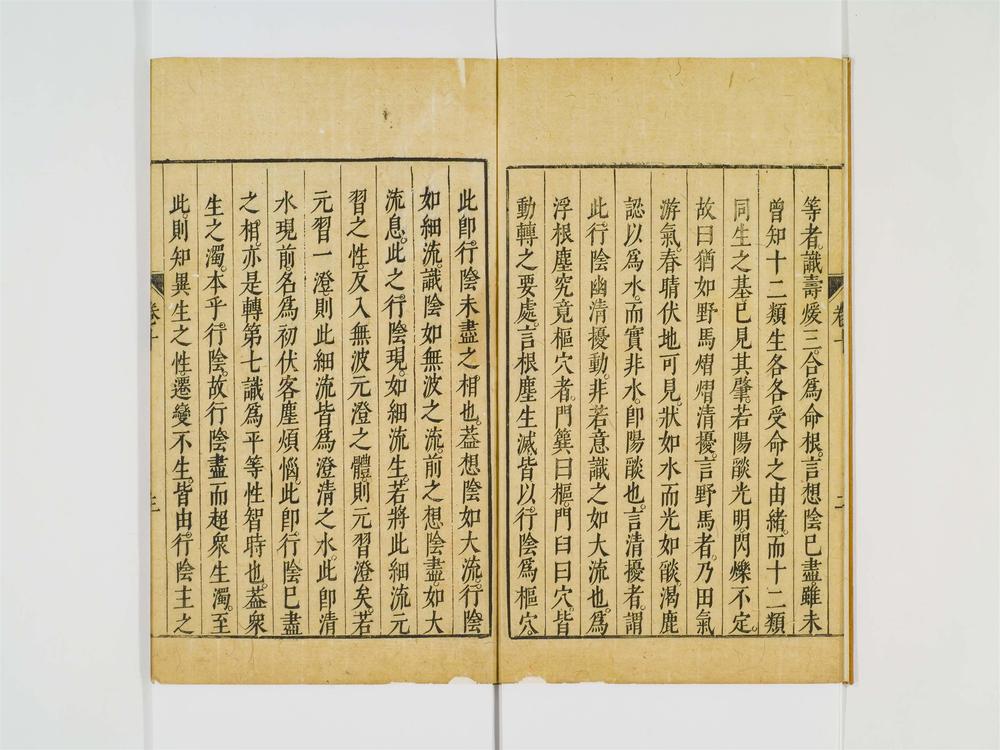 等者。識壽煖三。合爲命根。言想陰已盡。雖未
曾知十二類生各各受命之由緒。而十二類
同生之基已見其肇。若陽燄光明。閃爍不定。
故曰猶如野馬熠熠清擾。言野馬者。乃田氣
游氣。春晴伏地可見。狀如水而光如燄。渴鹿
認以爲水。而實非水。卽陽燄也。言清擾者。謂
此行陰幽清擾動。非若意識之如大流也。爲
浮根塵究竟樞穴者。門簨曰樞。門臼曰穴。皆
動轉之要處。言根塵生滅皆以行陰爲樞穴。
此卽行陰未盡之相也。葢想陰如大流。行陰
如細流。識陰如無波之流。前之想陰盡。如大
流息。此之行陰現。如細流生。若將此細流元
習之性。反入無波元澄之體。則元習澄矣。若
元習一澄。則此細流皆爲澄清之水。此卽清
水現前。名爲初伏客塵煩惱。此卽行陰已盡
之相。亦是轉第七識爲平等性智時也。葢衆
生之濁。本乎行陰。故行陰盡而超衆生濁。至
此。則知異生之性。遷變不生。皆由行陰主之
卷十
二
三